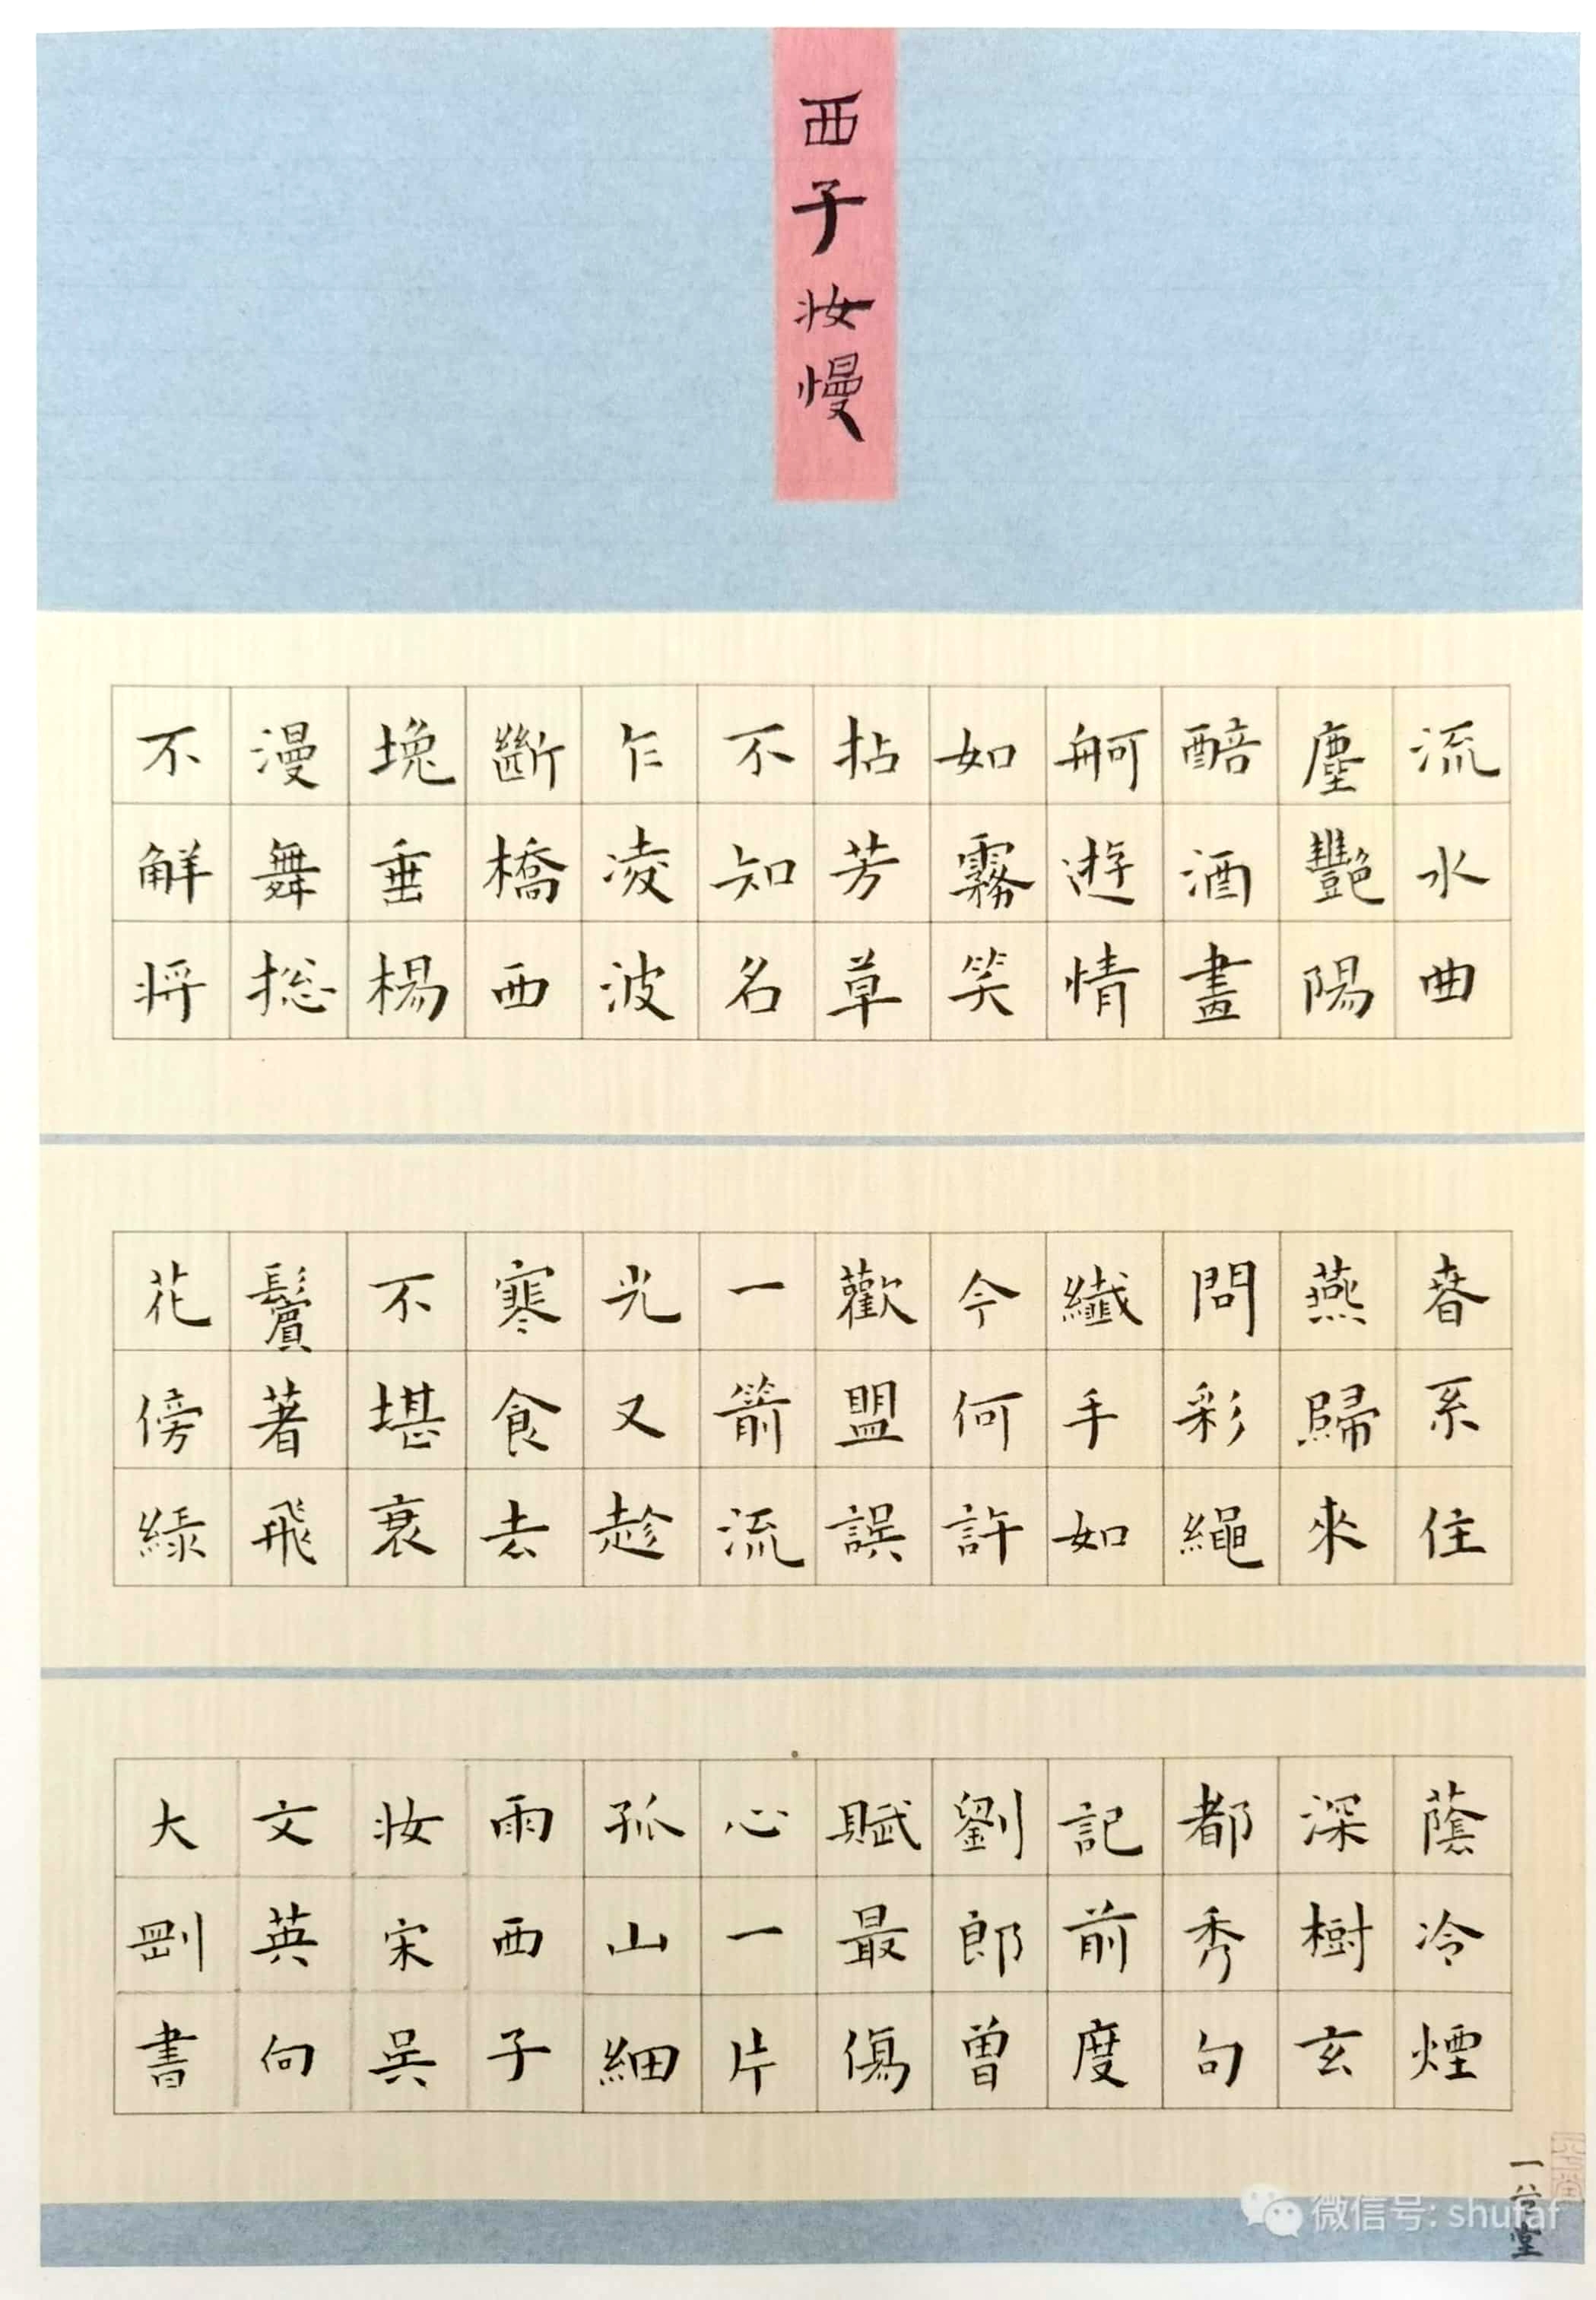 西子妆慢
流水曲
塵艷陽
醅酒畫
舸遊情
如霧笑
拈芳草
不知名
乍凌波
斷橋西
堍垂楊
漫舞捴
不解将
春系住
燕歸來
問彩繩
纖手如
今何許
歡盟誤
一箭流
光又趁
寒食去
不堪衰
鬢著飛
花傍綠
蔭冷煙
深樹玄
都秀句
記前度
劉郎曾
賦最傷
心一片
孤山細
雨西子
妆宋吳
文英句
大剛書
微信号: shufaf